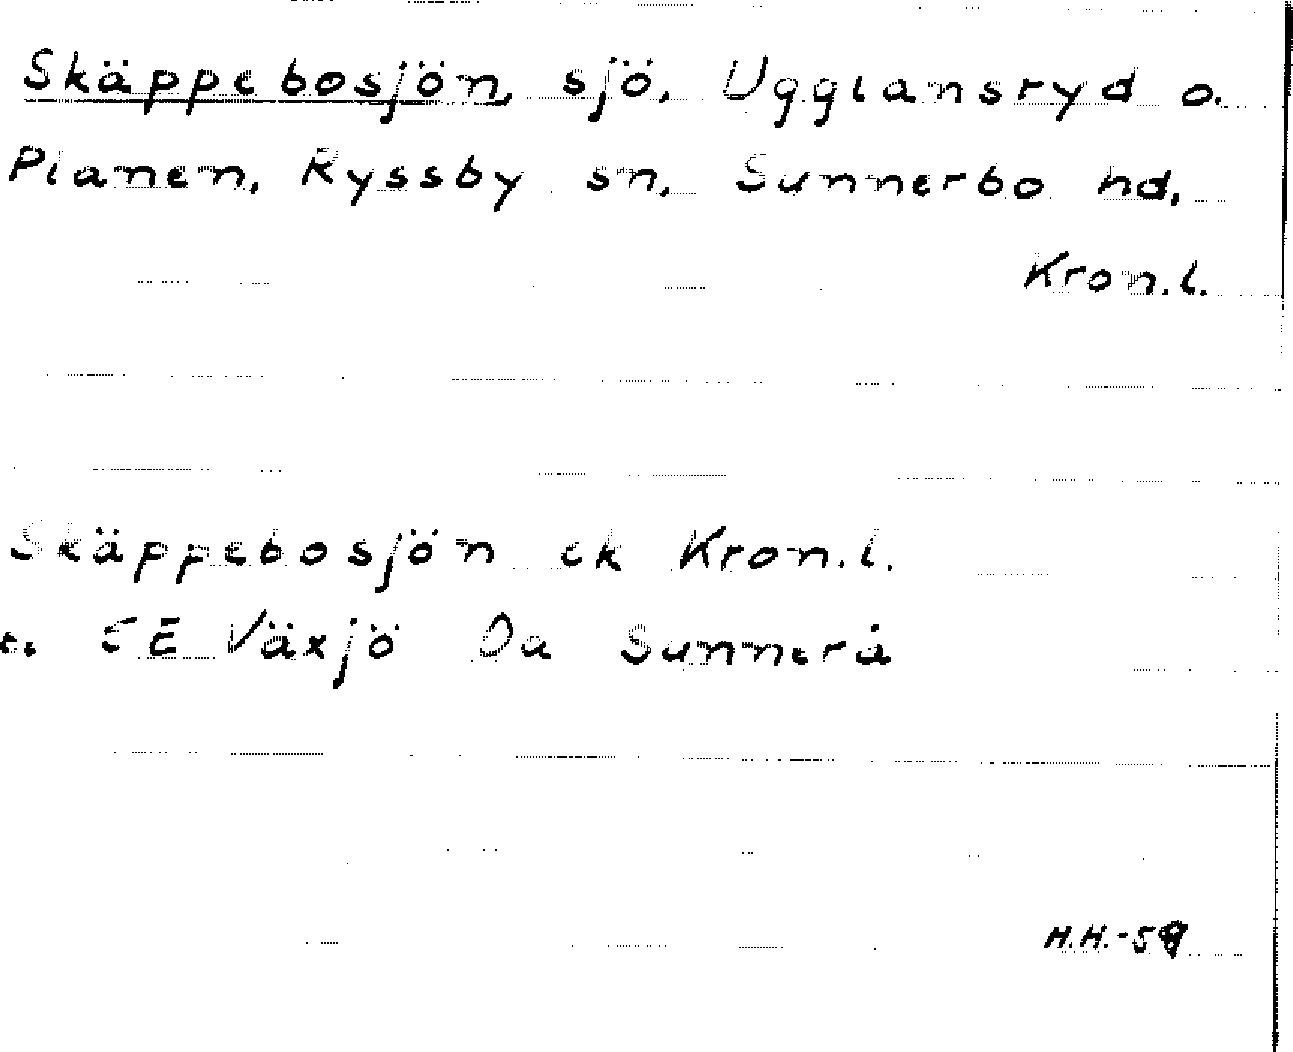 Skäppebosjön, sjö, Ugglansryd o.
Planen, Ryssby sn, Sunnerbo hd,
Kron.l.
Skäppebosjön ek Kron.l.
5E Växjö Da Sunnerå
H.H.-59